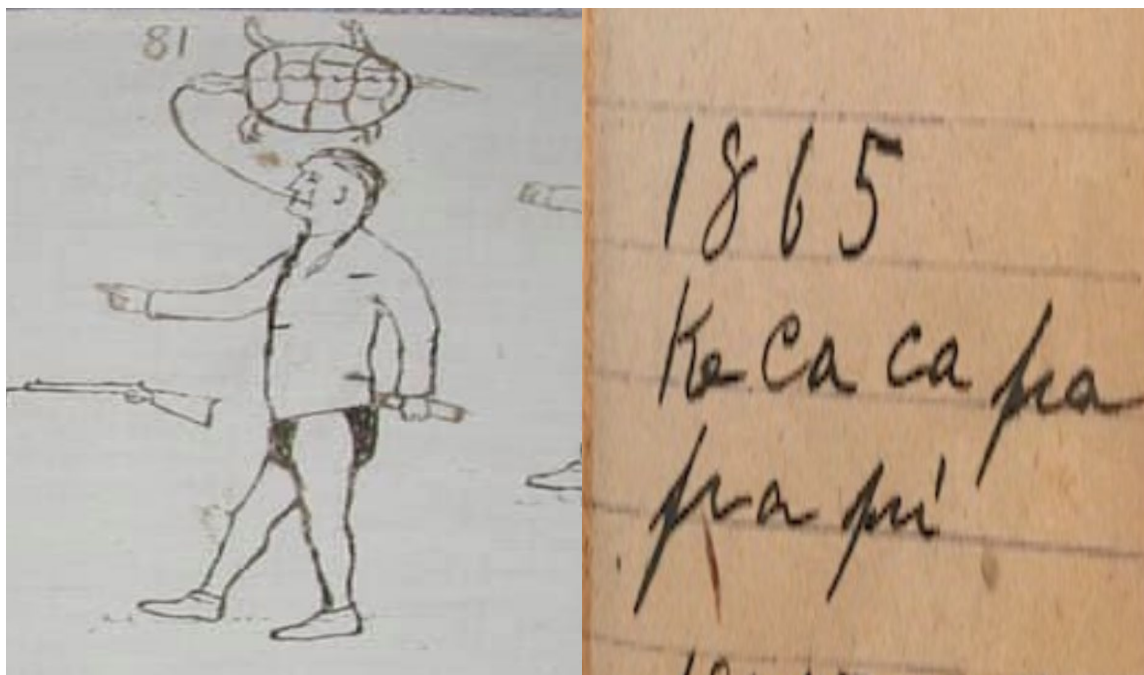 81
1865
Ke ca ca pa
pa pi